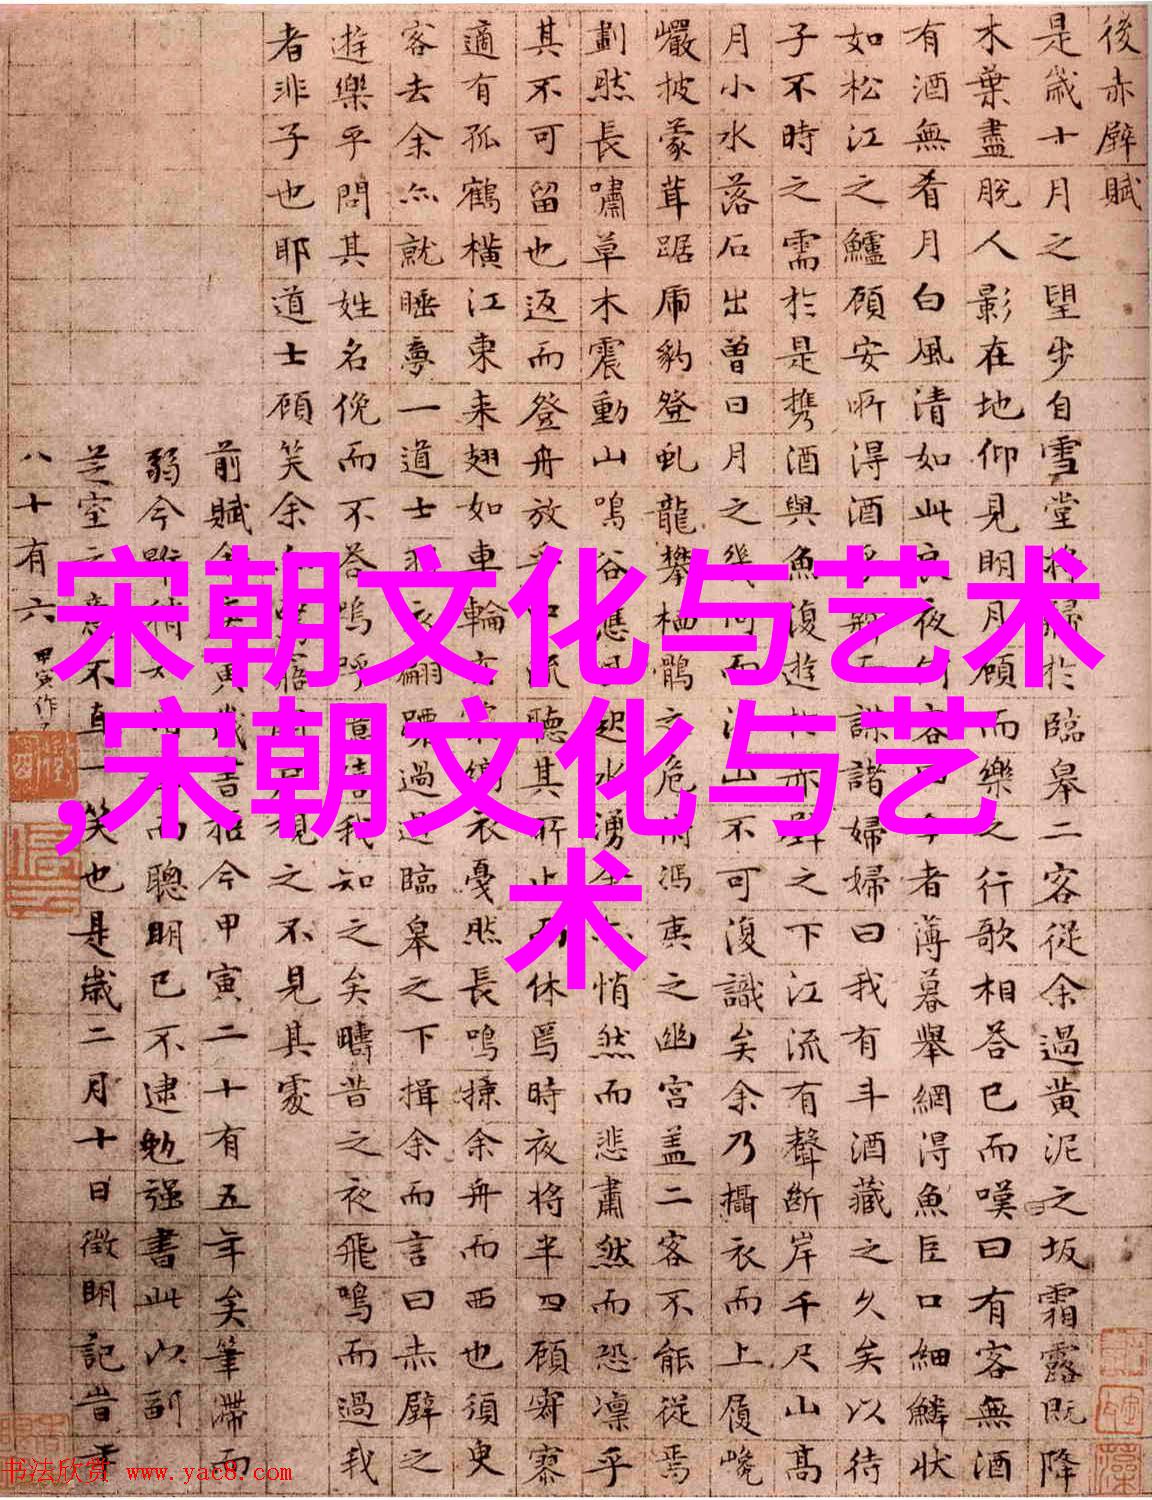 後赤壁賦
是歲十月之望步自雪堂將歸於臨皋二客從余過黃泥之坂霜露既降
木葉盡脫人影在地仰見明月顧而樂之行歌相答已而嘆曰有客無酒
有酒無肴月白風清如此良夜何客曰今者薄暮舉網得魚巨口細鱗狀
如松江之鱸顧安所得酒乎歸而謀諸婦婦曰我有斗酒藏之久矣以待
子不時之需於是攜酒與魚復遊於赤壁之下江流有聲斷岸千尺山高
月小水落石出曾日月之幾何而江山不可復識矣余乃攝衣而上履巉
巖披蒙茸踞虎豹登虬龍攀栖鶻之危俯馮夷之幽宮蓋二客不能從焉
劃然長嘯草木震動山鳴谷應風起水湧余亦悄然而悲肅然而恐凜乎
其不可留也返而登舟放乎中流聽其所止而休焉時夜將半四顧寂寥
適有孤鶴橫江東來翅如車輪玄裳縞衣戛然長鳴掠余舟而西也須臾
客去余亦就睡夢一道士羽衣翩躚過臨皋之下揖余而言曰赤壁之
遊樂乎問其姓名俛而不答嗚呼噫嘻我知之矣疇昔之夜飛鳴而過我
者非子也耶道士顧笑余驚寤開戶視之不見其處
前賦余寅歲書抵今甲寅二十有五年矣筆滯而
弱今而聰明已不逮勉強書此以副
芝室之意不直一笑也是歲二月十日徵明記
八十有六
甲寅作
宋朝文化与艺术
,宋朝文化与艺
术
书法欣赏 www.yac8.com